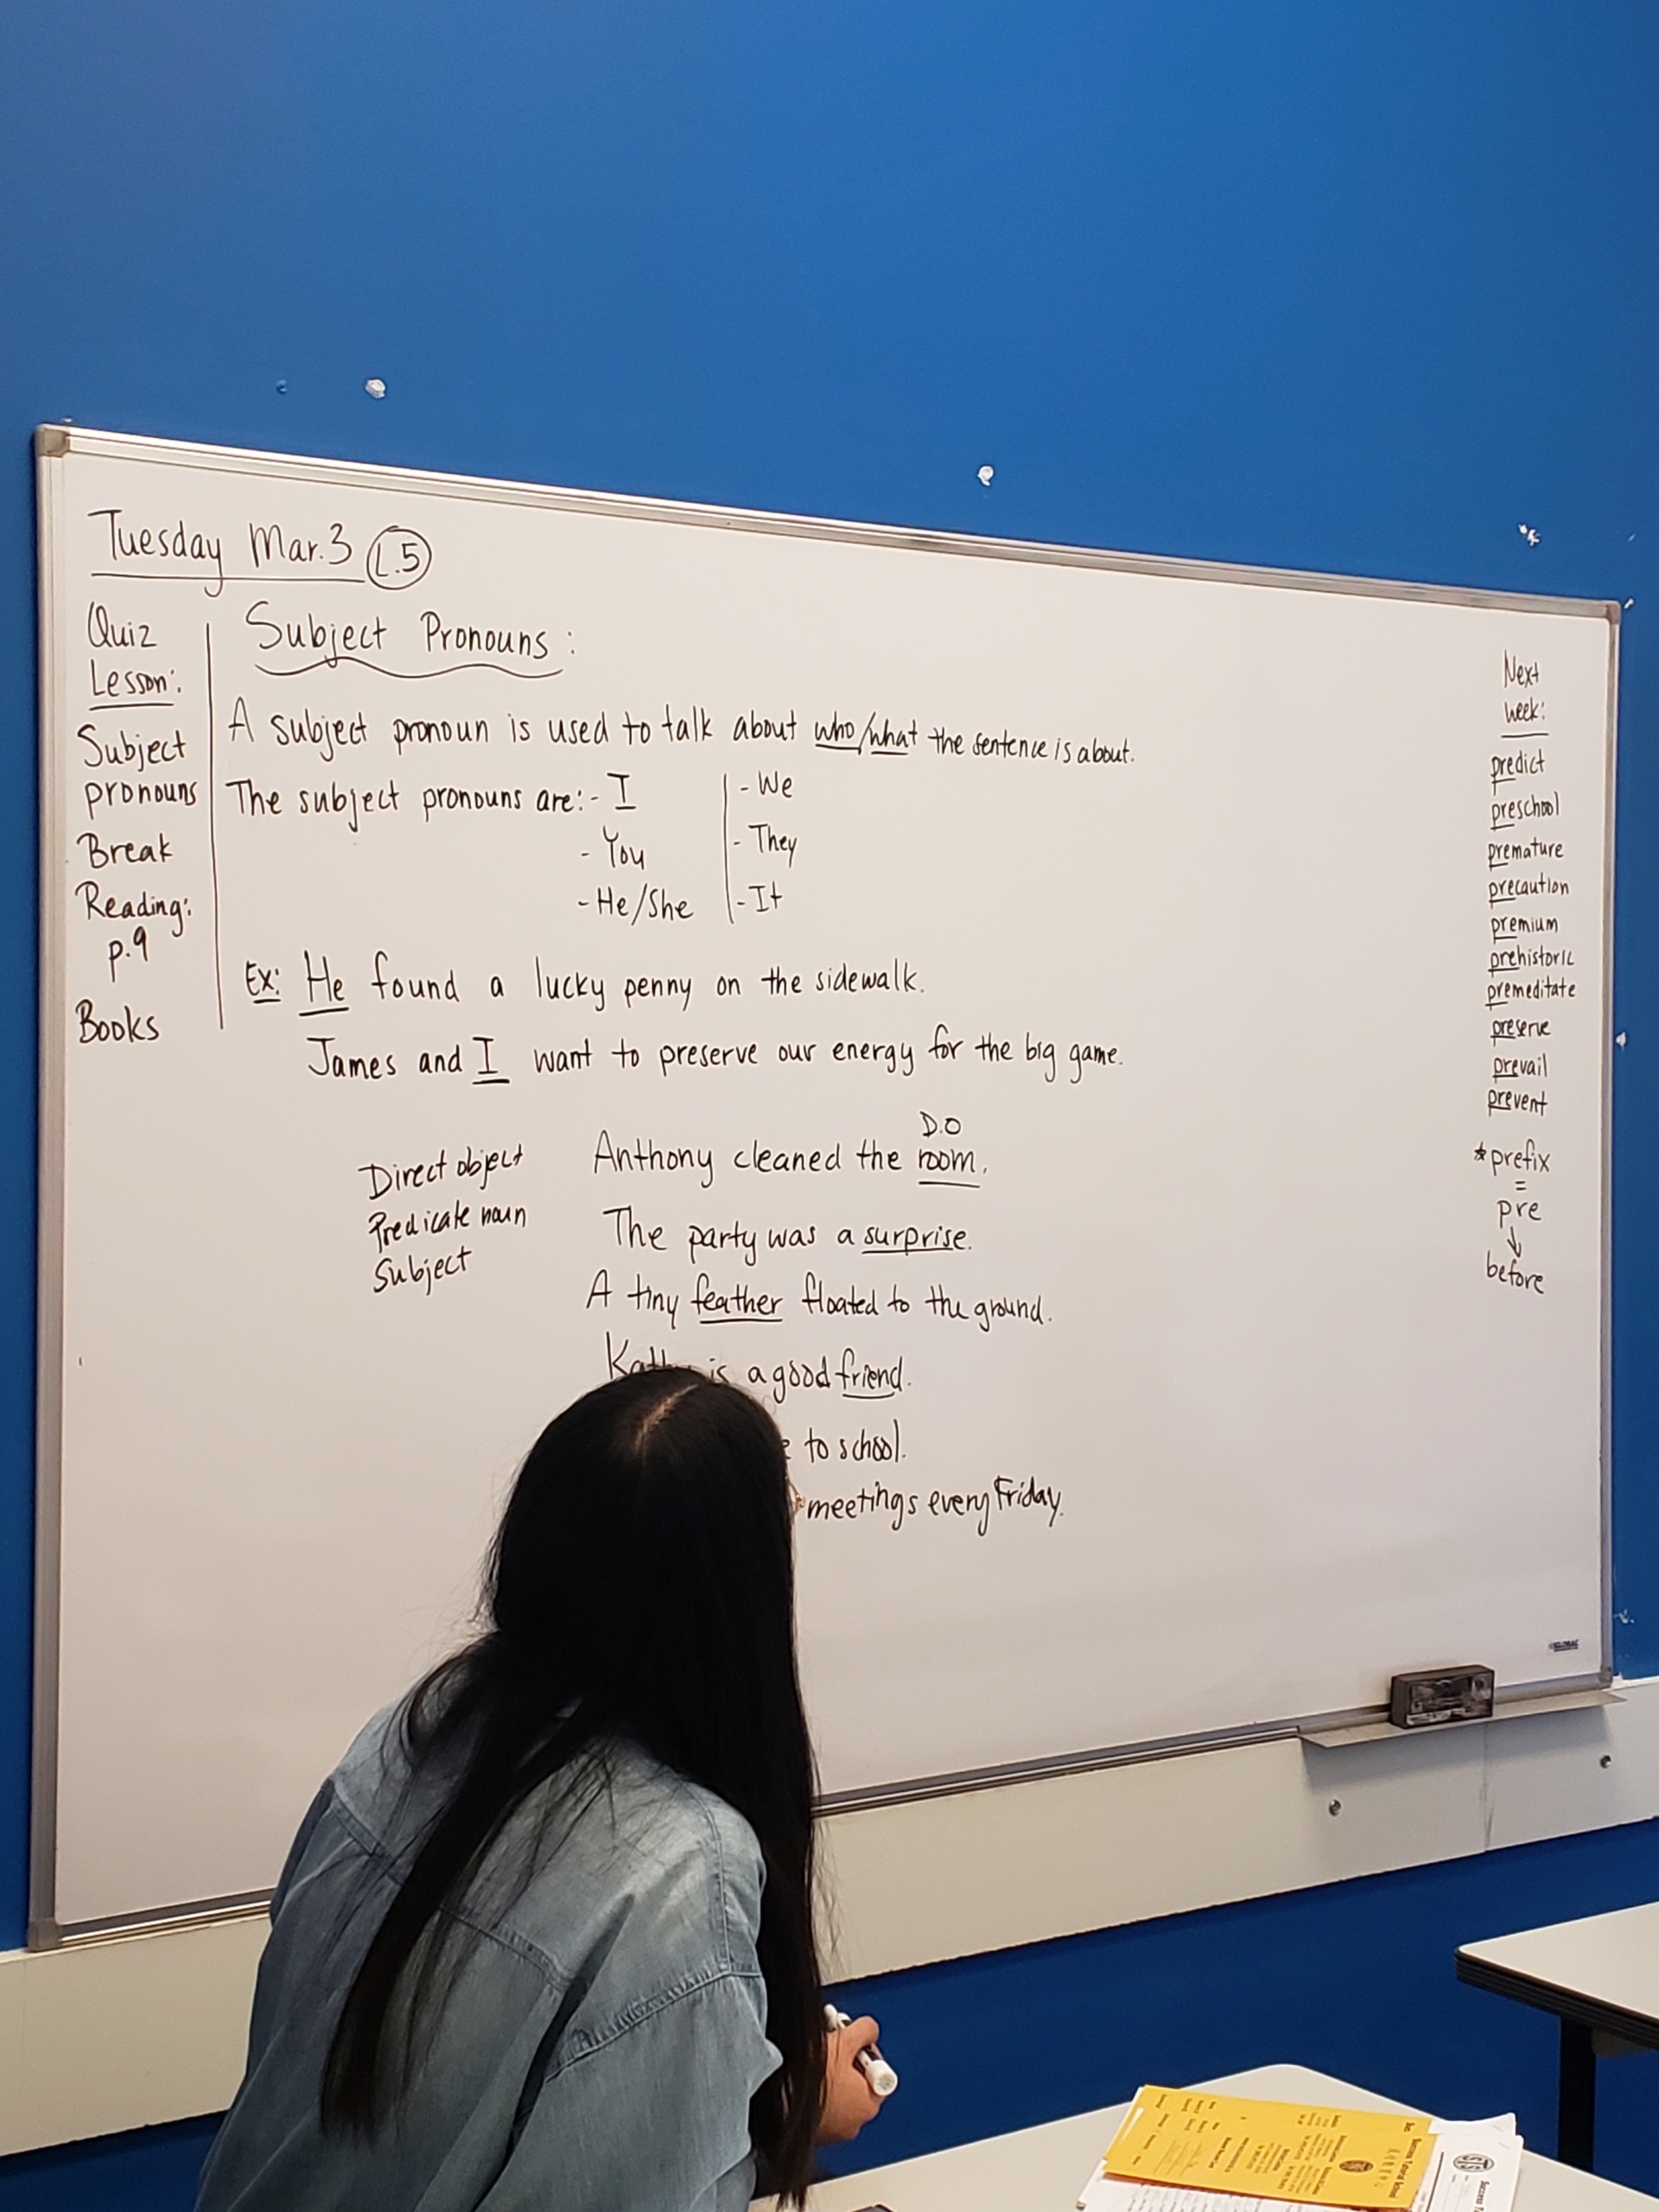 Tuesday Mar. 3 L.5
Quiz
Lesson:
Subject
pronouns
Break
Reading:
p.9
Books
Subject Pronouns:
A subject pronoun is used to talk about who/what the sentence is about.
The subject pronouns are: - I
- You
- He/She
- We
- They
- It
Ex: He found a lucky penny on the sidewalk.
James and I want to preserve our energy for the big game.
Direct object
Predicate noun
Subject
D.O
Anthony cleaned the room.
The party was a surprise.
A tiny feather floated to the ground.
is a good friend.
to school.
meetings every Friday.
Next
week:
predict
preschool
premature
precaution
premium
prehistoric
premeditate
preserve
prevail
prevent
*prefix
=
pre
↓
before
GLOBAL
STS